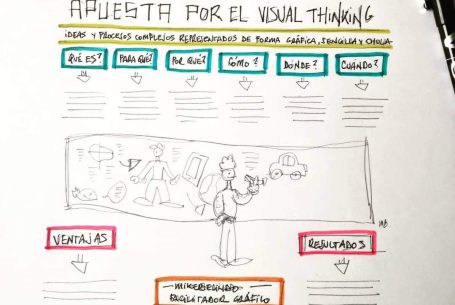 APUESTA POR EL VISUAL THINKING
IDEAS Y PROCESOS COMPLEJOS REPRESENTADOS DE FORMA GRÁFICA, SENCILLA Y CHULA
QUÉ ES? PARA QUÉ? POR QUÉ? CÓMO? DÓNDE? CUANDO?
VENTAJAS
RESULTADOS
FACILITADOR GRÁFICO